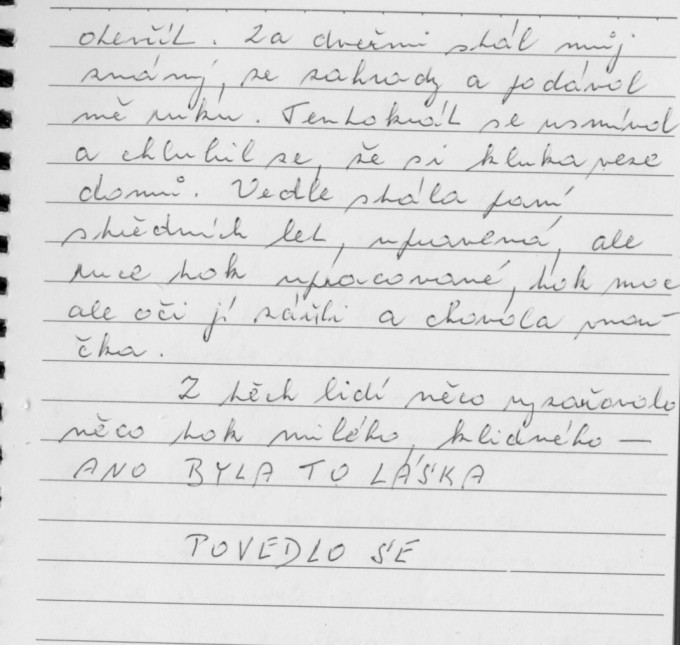 otevřít. Za dveřmi stál můj
známý, ze zahrady a podával
mě ruku. Tentokrát se usmíval
a chlubil se, že si kluka veze
domů. Vedle stála paní
středních let, upravená, ale
ruce tak upracované, tak moc
ale oči jí zářili a chovala vnou-
čka.
Z těch lidí něco vyzařovalo
něco tak milého, klidného —
ANO BYLA TO LÁSKA
POVEDLO SE